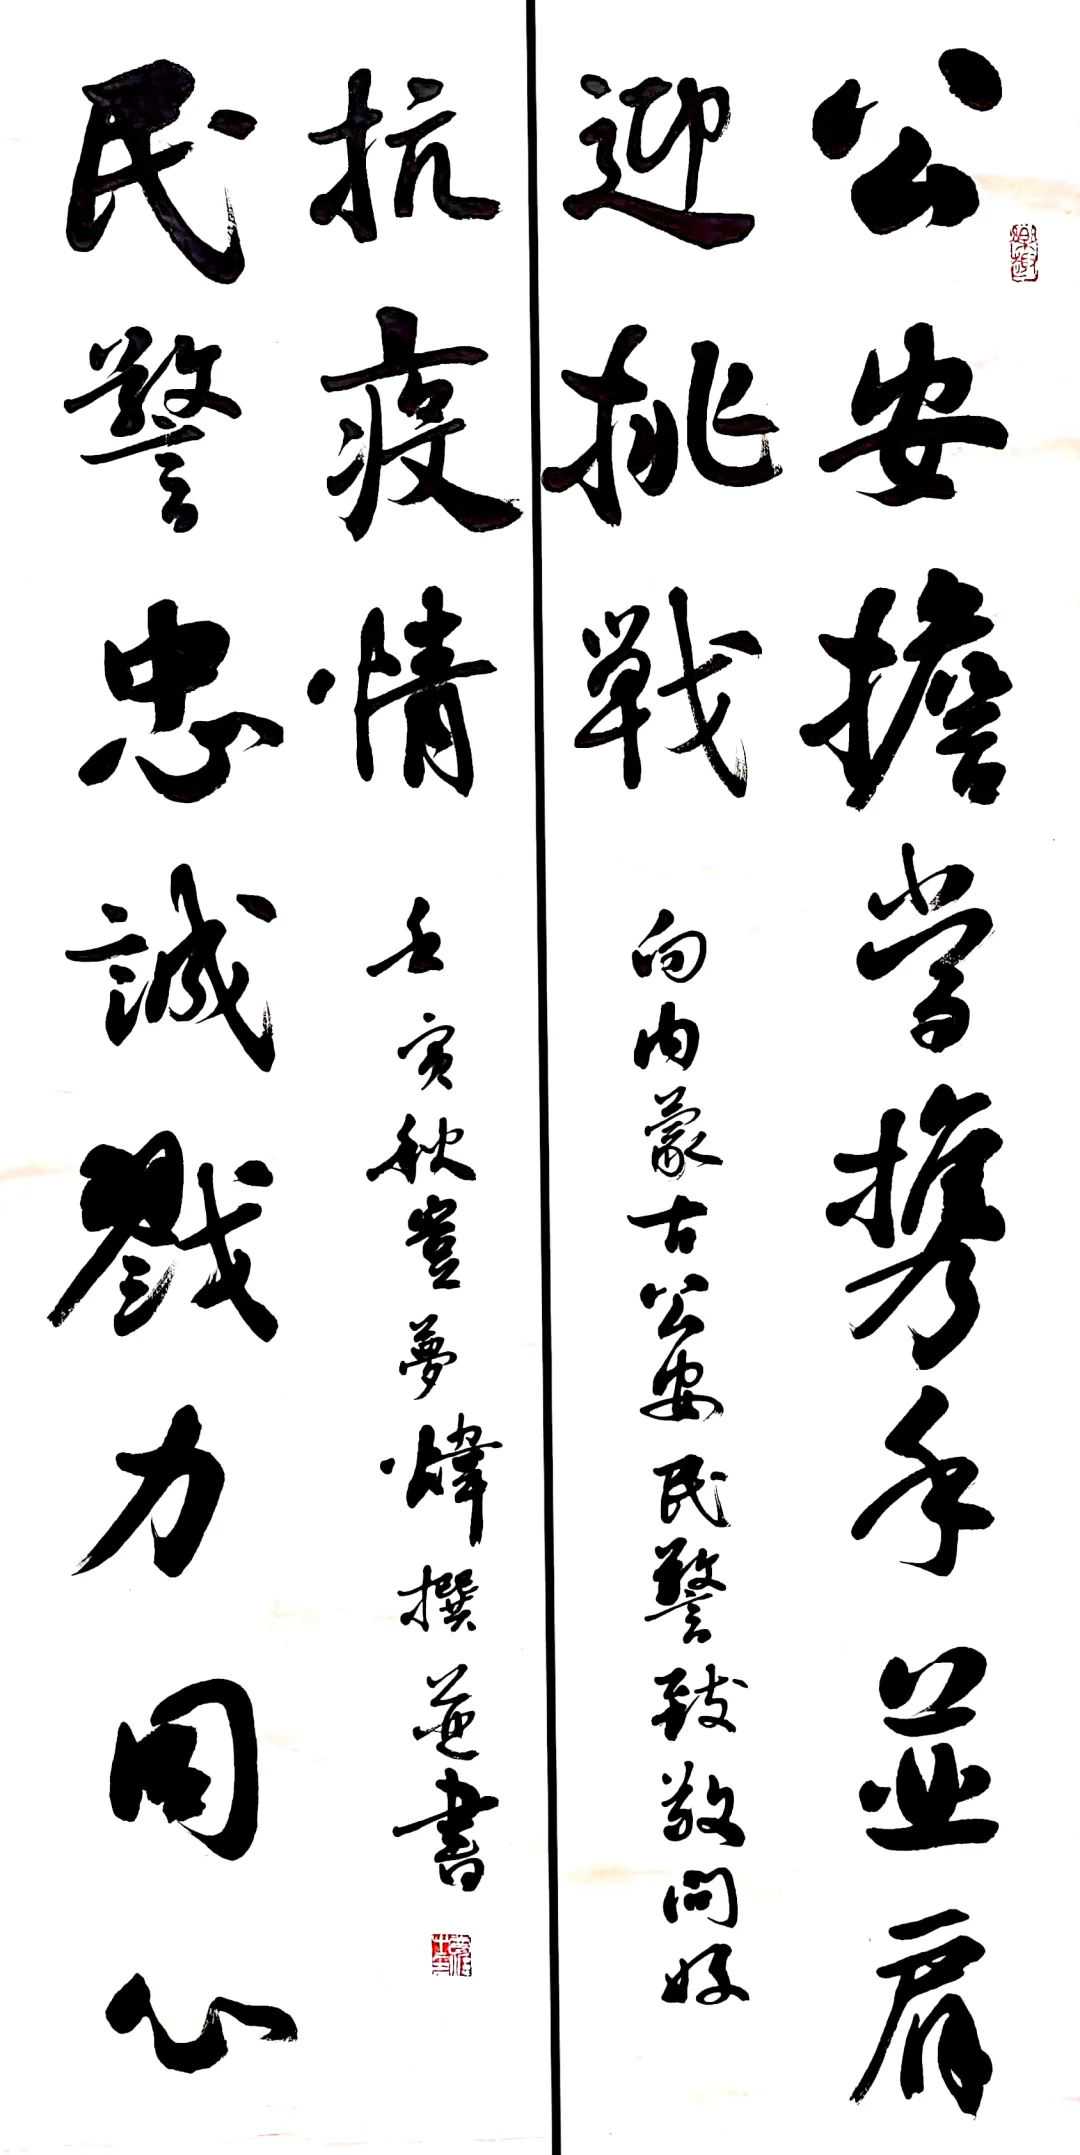 公安擔當携手並肩
迎挑戰
向内蒙古公安民警致敬问好
民警忠誠戮力同心
抗疫情
壬寅秋豈夢煒撰並書